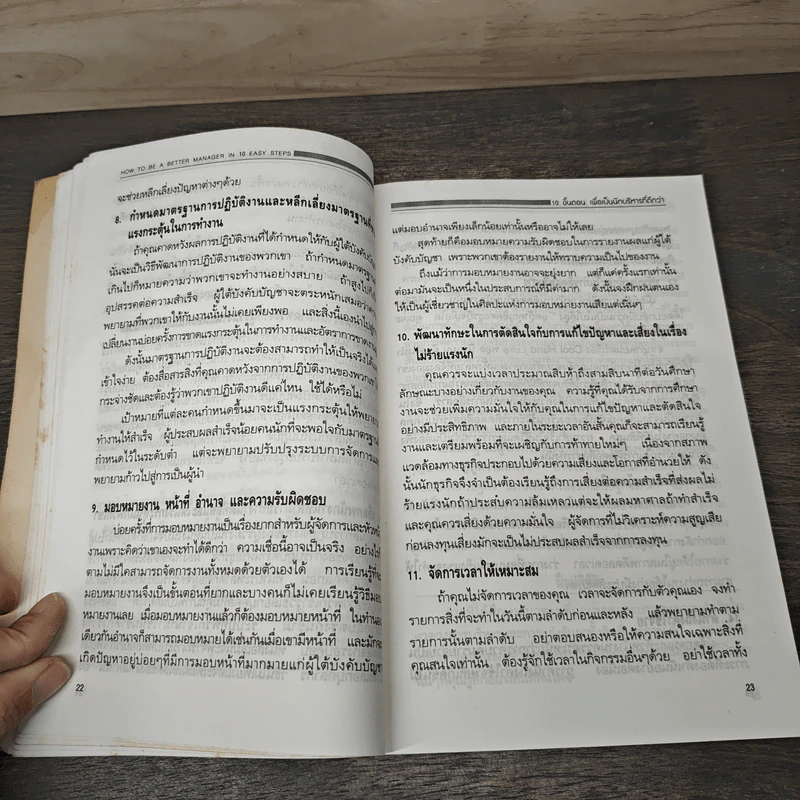 HOW TO BE A BETTER MANAGER IN 10 EASY STEPS
จะช่วยหลีกเลี่ยงปัญหาต่างๆด้วย
8. กำหนดมาตรฐานการปฏิบัติงานและหลีกเลี่ยงมาตรฐานที่
แรงกระตุ้นในการทำงาน
ถ้าคุณคาดหวังผลการปฏิบัติงานที่ได้กำหนดให้กับผู้ใต้บังคับบัญ
นั้นจะเป็นวิธีพัฒนาการปฏิบัติงานของพวกเขา ถ้ากำหนดมาตรฐ
เกินไปก็หมายความว่าพวกเขาจะทำงานอย่างสบาย ถ้าสูงไปก็
อุปสรรคต่อความสำเร็จ ผู้ใต้บังคับบัญชาจะตระหนักเสมอว่า
พยายามที่พวกเขาให้กับงานนั้นไม่เคยเพียงพอ และสิ่งนี้เองนำไปสู่
เปลี่ยนงานบ่อยครั้งการขาดแรงกระตุ้นในการทำงานและอัตราการขาดงาน
ดังนั้นมาตรฐานการปฏิบัติงานจะต้องสามารถทำให้เป็นจริงได้
เข้าใจง่าย ต้องสื่อสารสิ่งที่คุณคาดหวังจากการปฏิบัติงานของพวกเขา
กระจ่างชัดและต้องรู้ว่าพวกเขาปฏิบัติงานดีแค่ไหน ใช้ได้หรือไม่
เป้าหมายที่แต่ละคนกำหนดขึ้นมาจะเป็นแรงกระตุ้นให้พยาย
ทำงานให้สำเร็จ ผู้ประสบผลสำเร็จน้อยคนนักที่จะพอใจกับมาตรฐ
กำหนดไว้ในระดับต่ำ แต่จะพยายามปรับปรุงระบบการจัดการและ
พยายามก้าวไปสู่การเป็นผู้นำ
9. มอบหมายงาน หน้าที่ อำนาจ และความรับผิดชอบ
บ่อยครั้งที่การมอบหมายงานเป็นเรื่องยากสำหรับผู้จัดการและหัวหน้
งานเพราะคิดว่าเขาเองจะทำได้ดีกว่า ความเชื่อนี้อาจเป็นจริง อย่างไร
ตามไม่มีใครสามารถจัดการงานทั้งหมดด้วยตัวเองได้ การเรียนรู้ที่จะ
มอบหมายงานจึงเป็นขั้นตอนที่ยากและบางคนก็ไม่เคยเรียนรู้วิธีมอบ
หมายงานเลย เมื่อมอบหมายงานแล้วก็ต้องมอบหมายหน้าที่ ในทำนอง
เดียวกันอำนาจก็สามารถมอบหมายได้เช่นกันเมื่อเขามีหน้าที่ และมักจะ
เกิดปัญหาอยู่บ่อยๆที่มีการมอบหน้าที่มากมายแก่ผู้ใต้บังคับบัญชา
22
10 ขั้นตอน เพื่อเป็นนักบริหารที่ดีกว่า
แต่มอบอำนาจเพียงเล็กน้อยเท่านั้นหรืออาจไม่ให้เลย
สุดท้ายก็คือมอบหมายความรับผิดชอบในการรายงานผลแก่ผู้ใต้
บังคับบัญชา เพราะพวกเขาต้องรายงานให้ทราบความเป็นไปของงาน
ถึงแม้ว่าการมอบหมายงานอาจจะยุ่งยาก แต่ก็แค่ครั้งแรกเท่านั้น
ต่อมามันจะเป็นหนึ่งในประสบการณ์ที่มีค่ามาก ดังนั้นจงฝึกฝนตนเอง
ให้เป็นผู้เชี่ยวชาญในศิลปะแห่งการมอบหมายงานเสียแต่เนิ่นๆ
10. พัฒนาทักษะในการตัดสินใจกับการแก้ไขปัญหาและเสี่ยงในเรื่อง
ไม่ร้ายแรงนัก
คุณควรจะแบ่งเวลาประมาณสิบห้าถึงสามสิบนาทีต่อวันศึกษา
ลักษณะบางอย่างเกี่ยวกับงานของคุณ ความรู้ที่คุณได้รับจากการศึกษา
งานจะช่วยเพิ่มความมั่นใจให้กับคุณในการแก้ไขปัญหาและตัดสินใจ
อย่างมีประสิทธิภาพ และภายในระยะเวลาอันสั้นคุณก็จะสามารถเรียนรู้
งานและเตรียมพร้อมที่จะเผชิญกับการท้าทายใหม่ๆ เนื่องจากสภาพ
แวดล้อมทางธุรกิจประกอบไปด้วยความเสี่ยงและโอกาสที่อำนวยให้ ดัง
นั้นนักธุรกิจจึงจำเป็นต้องเรียนรู้ถึงการเสี่ยงต่อความสำเร็จที่ส่งผลไม่
ร้ายแรงนักถ้าประสบความล้มเหลวแต่จะให้ผลมหาศาลถ้าทำสำเร็จ
และคุณควรเสี่ยงด้วยความมั่นใจ ผู้จัดการที่ไม่วิเคราะห์ความสูญเสีย
ก่อนลงทุนเสี่ยงมักจะเป็นไม่ประสบผลสำเร็จจากการลงทุน
11. จัดการเวลาให้เหมาะสม
ถ้าคุณไม่จัดการเวลาของคุณ เวลาจะจัดการกับตัวคุณเอง จงทำ
รายการสิ่งที่จะทำในวันนี้ตามลำดับก่อนและหลัง แล้วพยายามทำตาม
รายการนั้นตามลำดับ อย่าตอบสนองหรือให้ความสนใจเฉพาะสิ่งที่
คุณสนใจเท่านั้น ต้องรู้จักใช้เวลาในกิจกรรมอื่นๆด้วย อย่าใช้เวลาทั้ง
23